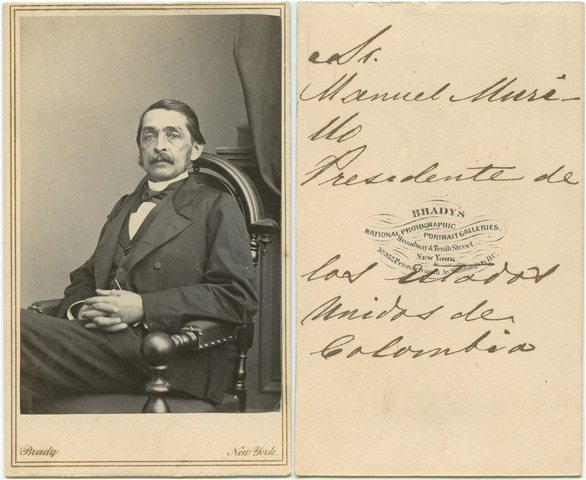 Brady
New York.
Sr.
Manuel Muri-
llo
Presedente de
BRADY'S
NATIONAL PHOTOGRAPHIC
PORTRAIT GALLERIES,
Broadway & Tenth Street
NEW YORK
&
No. 352 Pennsylvania Av. Washington, D.C.
los Estados
Unidos de
Colombia